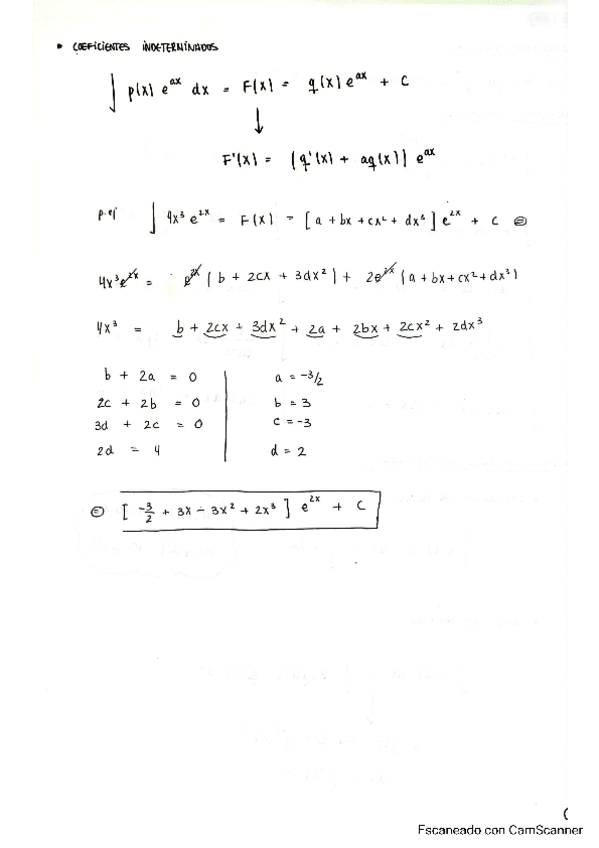 • COEFICIENTES INDETERMINADOS
∫ p(x) e^{ax} dx = F(x) = q(x) e^{ax} + C
↓
F'(x) = (q'(x) + aq(x)) e^{ax}
p.ej ∫ 4x³ e^{2x} = F(x) = [a + bx + cx² + dx³] e^{2x} + C ⊜
4x³e^{2x} = e^{2x} (b + 2cx + 3dx²) + 2e^{2x} (a + bx + cx² + dx³)
4x³ = b + 2cx + 3dx² + 2a + 2bx + 2cx² + 2dx³
b + 2a = 0 | a = -3/2
2c + 2b = 0 | b = 3
3d + 2c = 0 | c = -3
2d = 4 | d = 2
⊜ [-3/2 + 3x - 3x² + 2x³] e^{2x} + C
Escaneado con CamScanner